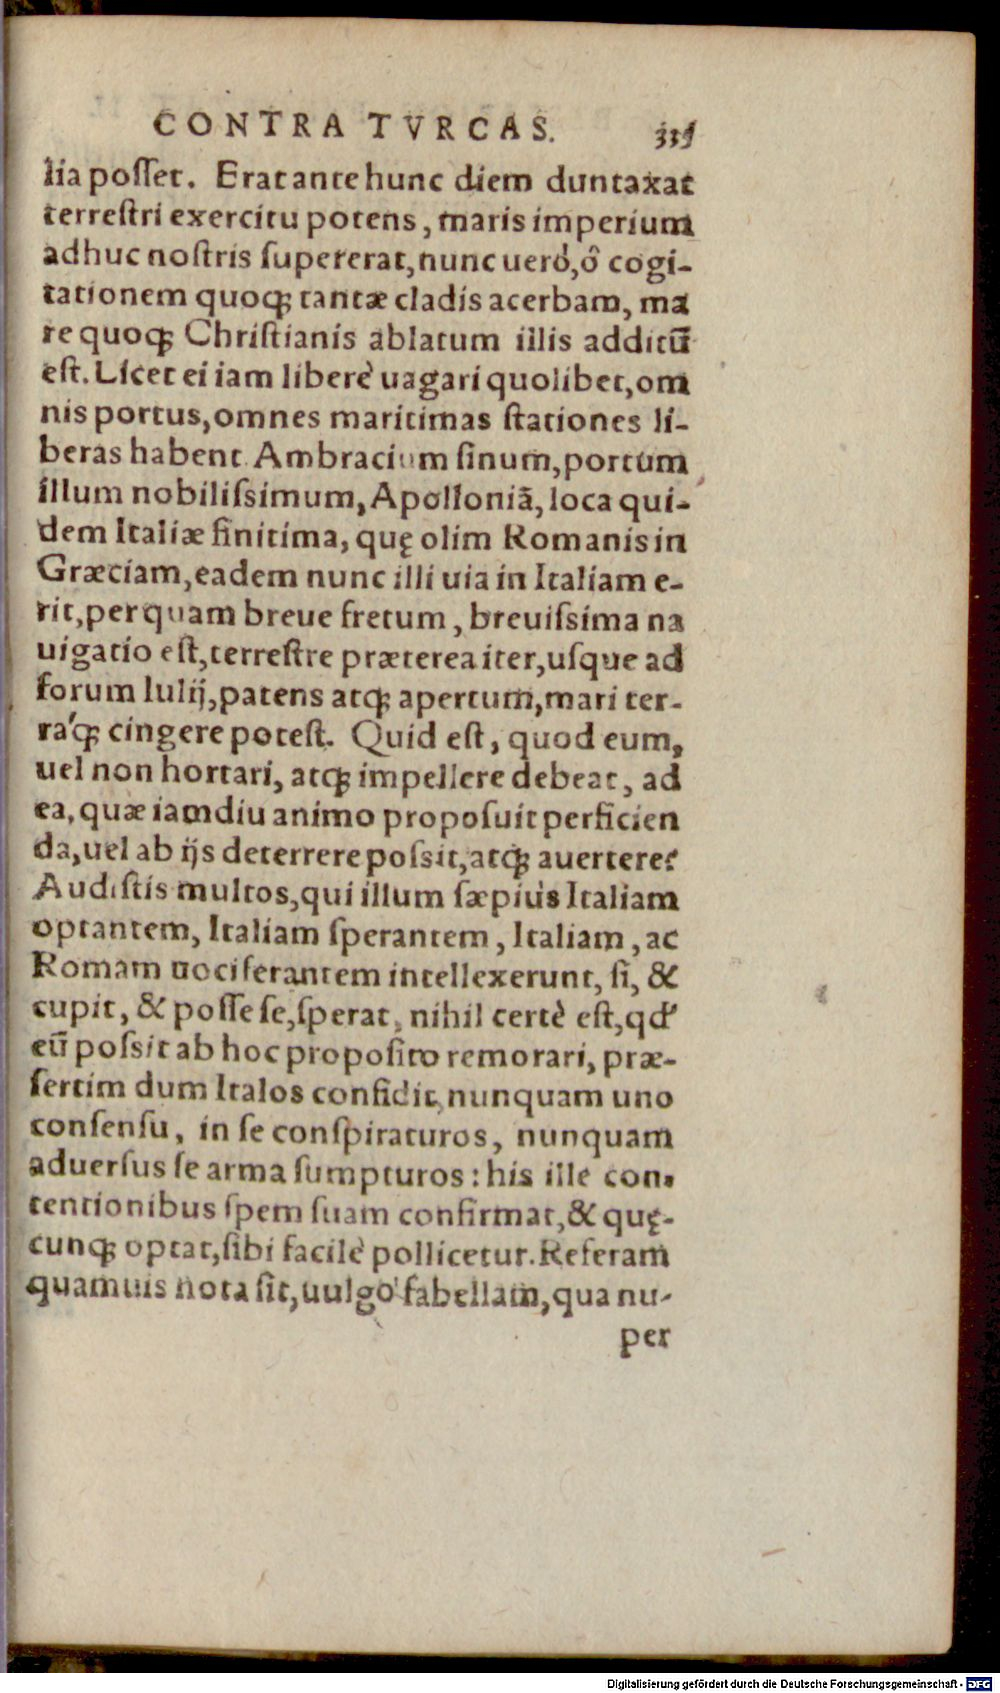 CONTRA TVRCAS. 335
lia posſet. Erat ante hunc diem duntaxat
terreſtri exercitu potens, maris imperium
adhuc noſtris ſupererat, nunc uerò, ô cogi-
tationem quoq; tantæ cladis acerbam, ma
re quoq; Chriſtianis ablatum illis additū
eſt. Licet ei iam liberè uagari quolibet, om
nis portus, omnes maritimas ſtationes li-
beras habent Ambracium ſinum, portum
illum nobiliſsimum, Apolloniā, loca qui-
dem Italiæ finitima, quę olim Romanis in
Græciam, eadem nunc illi uia in Italiam e-
rit, perquam breue fretum, breuiſsima na
uigatio eſt, terreſtre præterea iter, uſque ad
forum Iulij, patens atq; apertum, mari ter-
ráq; cingere poteſt. Quid eſt, quod eum,
uel non hortari, atq; impellere debeat, ad
ea, quæ iamdiu animo propoſuit perficien
da, uel ab ijs deterrere poſsit, atq; auertere?
Audiſtis multos, qui illum ſæpius Italiam
optantem, Italiam ſperantem, Italiam, ac
Romam uociferantem intellexerunt, ſi, &
cupit, & poſſe ſe, ſperat, nihil certè eſt, qd'
eū poſsit ab hoc propoſito remorari, præ-
ſertim dum Italos confidit, nunquam uno
conſenſu, in ſe conſpiraturos, nunquam
aduerſus ſe arma ſumpturos: his ille con-
tentionibus ſpem ſuam confirmat, & quę-
cunq; optat, ſibi facilè pollicetur. Referam
quamuis nota ſit, uulgò fabellam, qua nu-
per
Digitalisierung gefördert durch die Deutsche Forschungsgemeinschaft - DFG